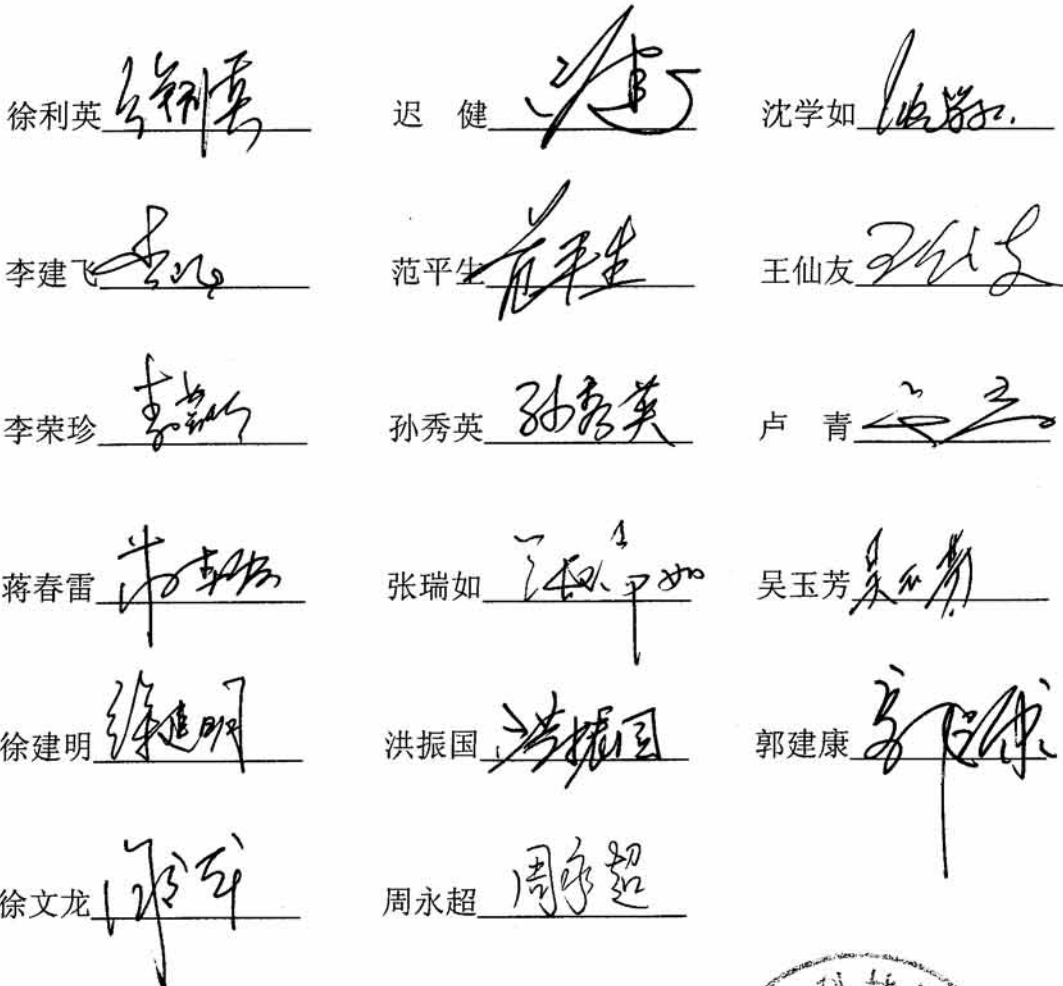 徐利英 徐利英 迟 健 迟健 沈学如 沈学如
李建飞 李建飞 范平生 范平生 王仙友 王仙友
李荣珍 李荣珍 孙秀英 孙秀英 卢 青
蒋春雷 蒋春雷 张瑞如 张瑞如 吴玉芳 吴玉芳
徐建明 徐建明 洪振国 洪振国 郭建康 郭建康
徐文龙 周永超 周永超